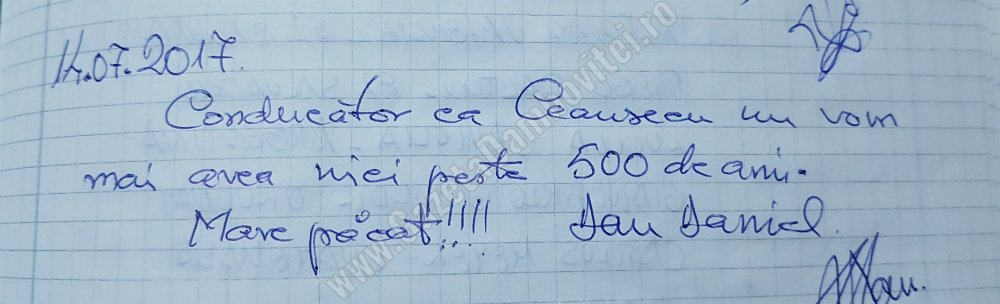 14.07.2017.
Conducător ca Ceausecu nu vom
mai avea nici peste 500 de ani.
Mare păcat!!!!! Dan Daniel.
www.GazetaDambovitei.ro